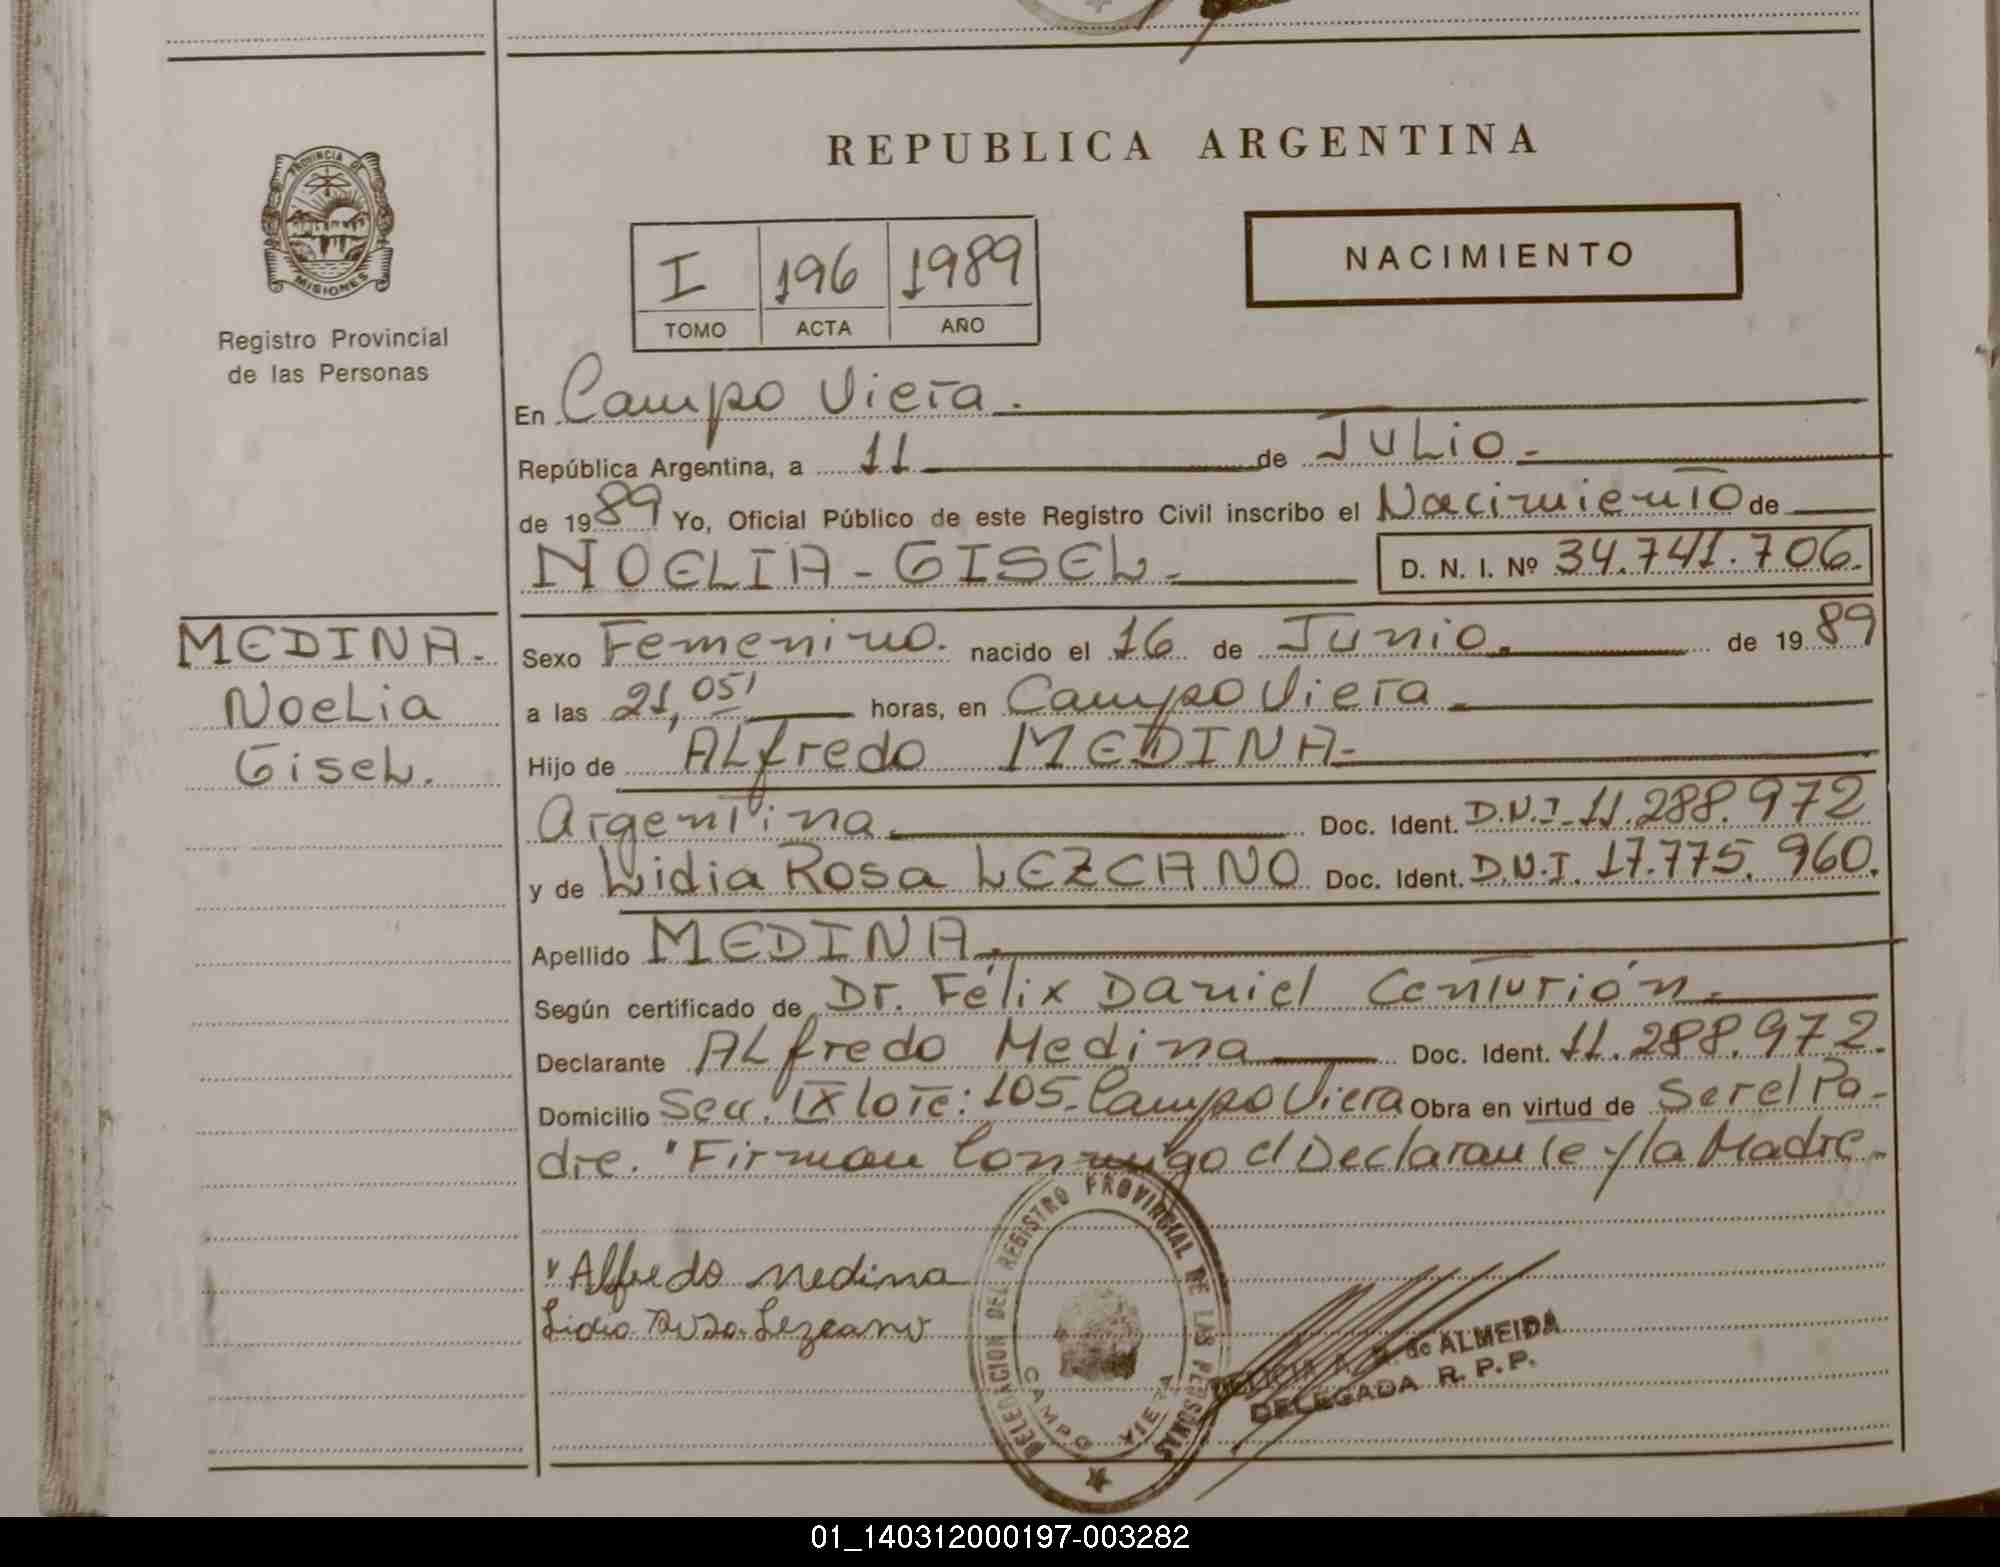 REPUBLICA ARGENTINA
PROVINCIA DE
MISIONES
Registro Provincial
de las Personas
I 196 1989
TOMO ACTA AÑO
NACIMIENTO
En Campo Viera.
República Argentina, a 11 de JULIO.-
de 1989 Yo, Oficial Público de este Registro Civil inscribo el Nacimiento de
NOELIA-GISEL.- D. N. I. Nº 34.741.706.
MEDINA.-
Noelia
Gisel.
Sexo Femenino. nacido el 16 de Junio. de 1989
a las 21,05' horas, en Campo Viera
Hijo de Alfredo MEDINA-
Argentina. Doc. Ident. D.N.I. 11.288.972
y de Lidia Rosa LEZCANO Doc. Ident. D.N.I. 17.775.960.
Apellido MEDINA.
Según certificado de Dr. Félix Daniel Centurión.-
Declarante Alfredo Medina Doc. Ident. 11.288.972.
Domicilio Secc. IX lote: 105-Campo Viera Obra en virtud de Ser el Pa-
dre. "Firman Conmigo el Declarante y la Madre.-
Alfredo medina
Lidia Rosa Lezcano
DELEGACION DEL REGISTRO PROVINCIAL DE LAS PERSONAS
CAMPO VIERA
DELICIA A. de ALMEIDA
DELEGADA R. P. P.
01_140312000197-003282